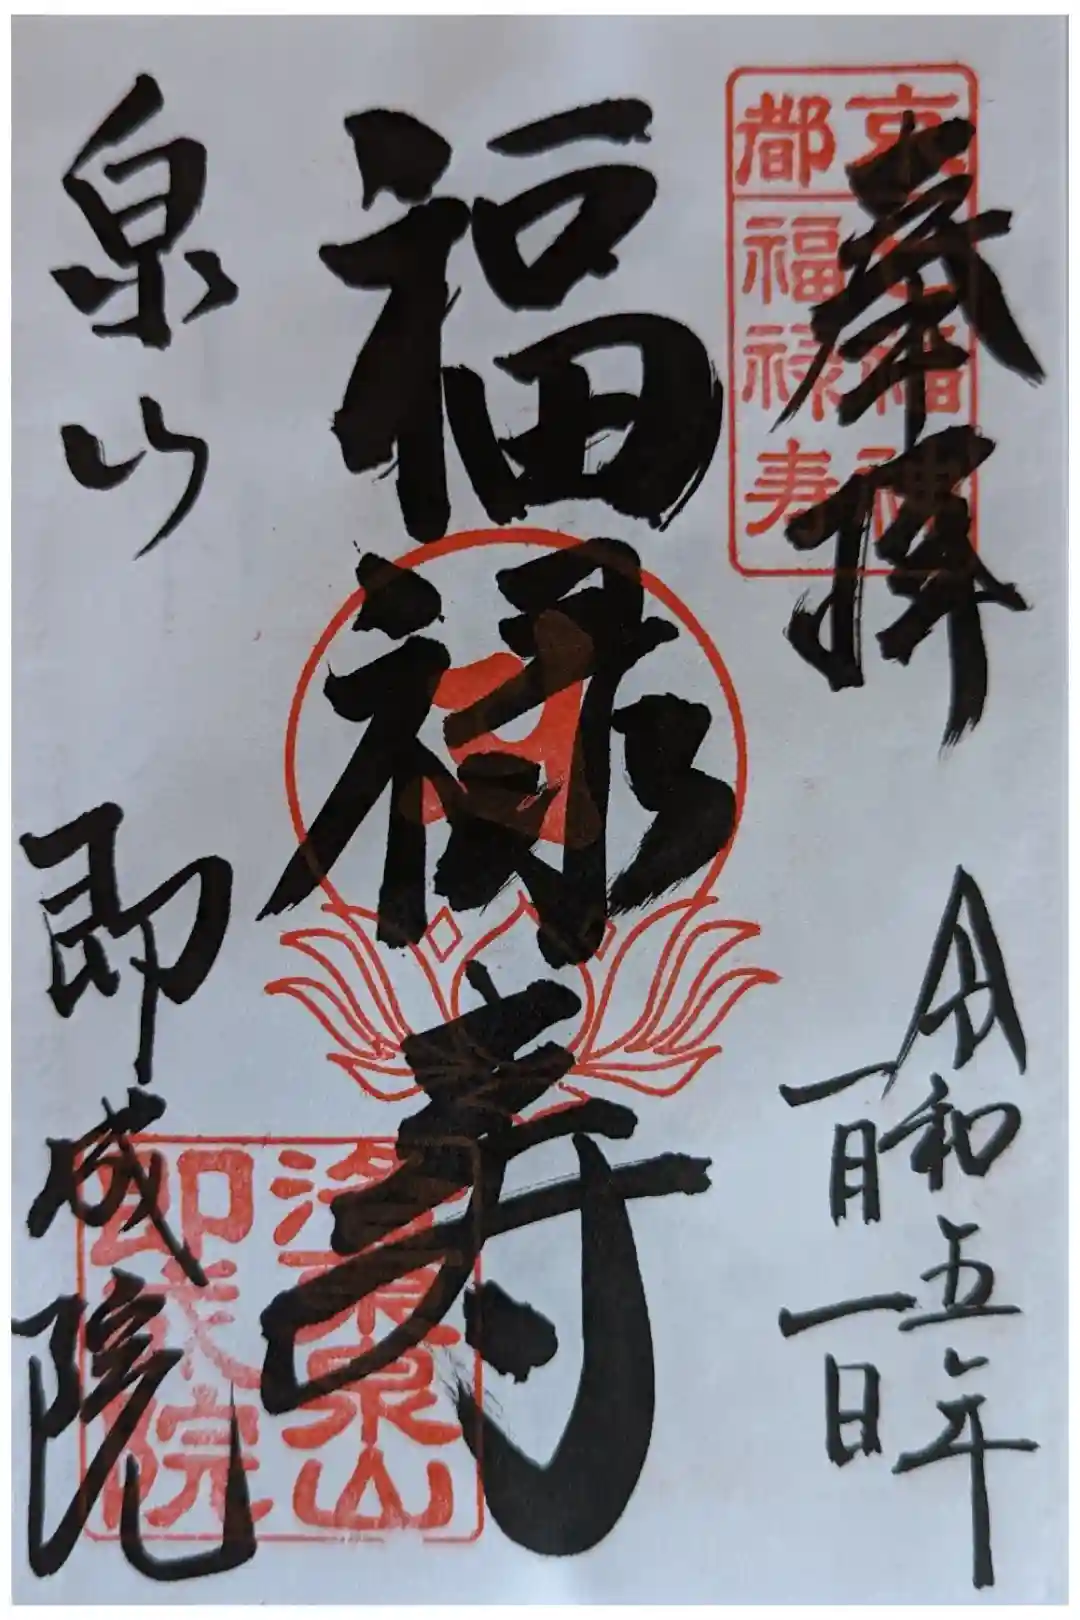 京都
福神
福禄寿
奉拝
令和五年
一月一日
福禄寿
泉山
即成院
洛東泉山
即成院